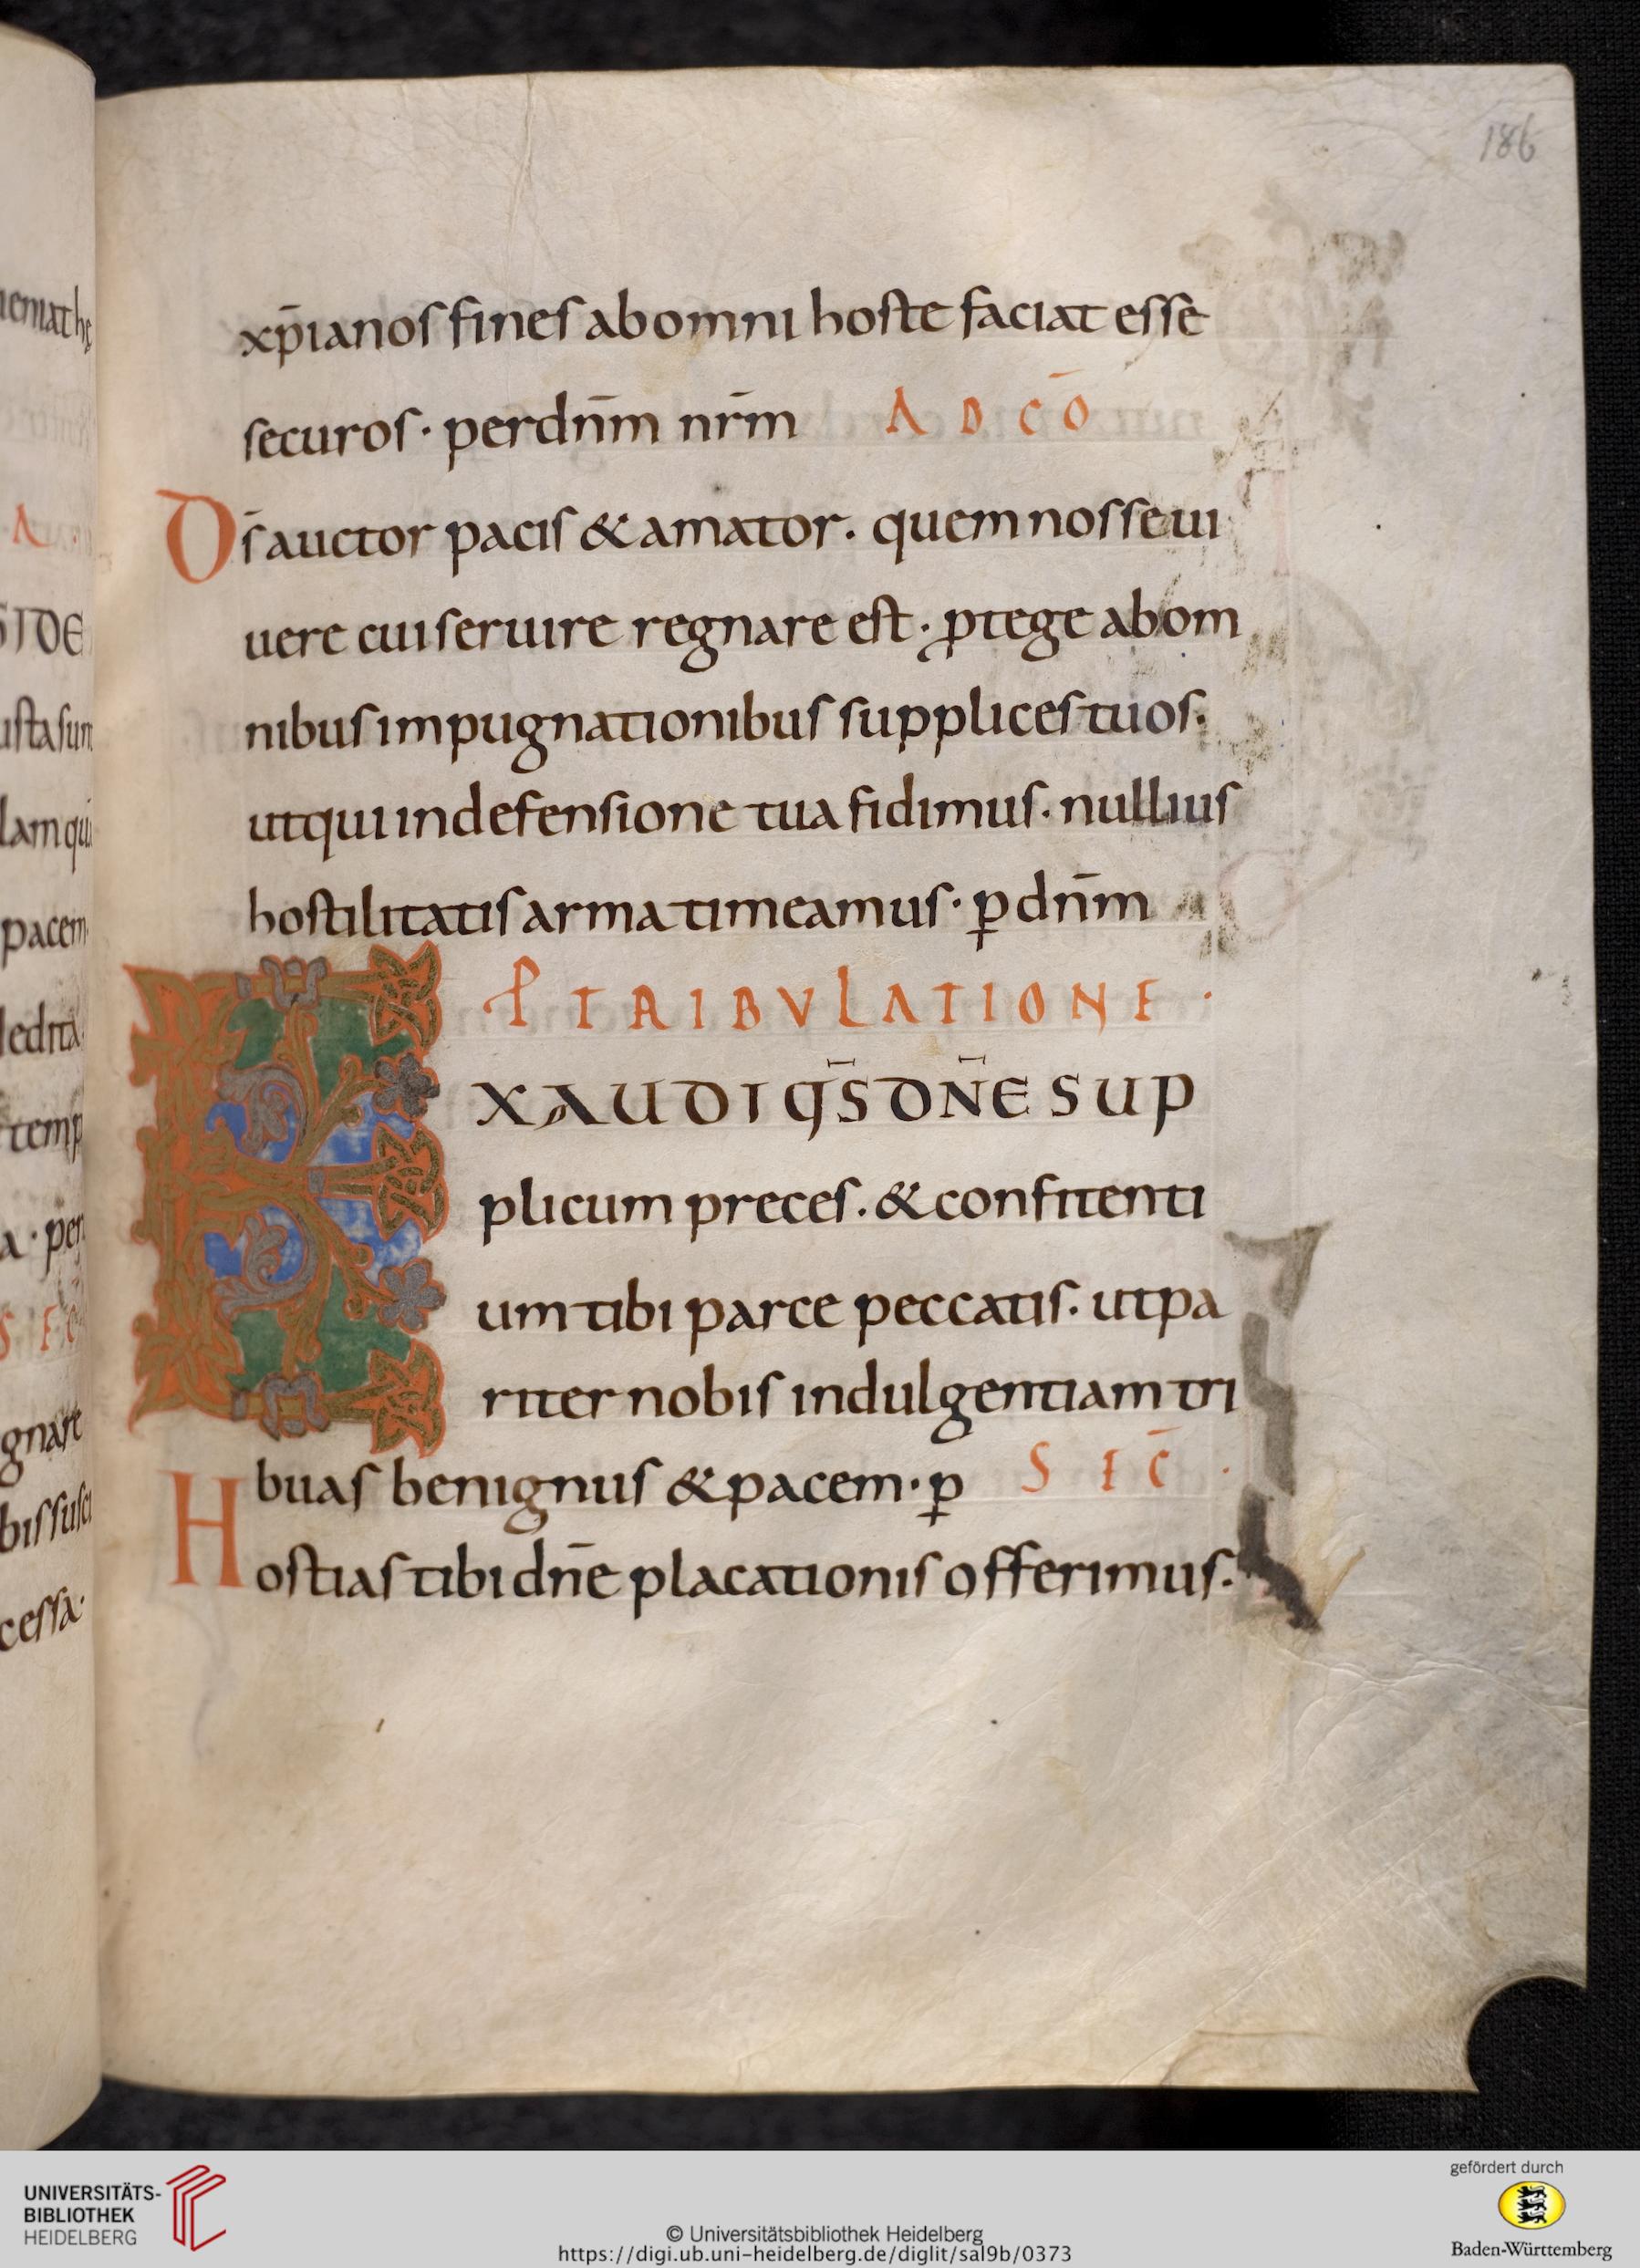 186
xp̄ianos fines ab omni hoste faciat esse
securos · per dn̄m nr̄m A D C Ō
D s̄ auctor pacis & amator. quem nosse ui
uere cui seruire regnare est · ꝓtege ab om
nibus impugnationibus supplices tuos.
ut qui in defensione tua fidimus. nullius
hostilitatis arma timeamus · ꝑ dn̄m
P TRIBVLATIONE ·
E XAUDI qs̄ DN̄E SUP
plicum preces. & confitenti
um tibi parce peccatis. ut pa
riter nobis indulgentiam tri
buas benignus & pacem · ꝑ S E C̄ ·
Hostias tibi dn̄e placationis offerimus.
UNIVERSITÄTS-
BIBLIOTHEK
HEIDELBERG
© Universitätsbibliothek Heidelberg
https://digi.ub.uni-heidelberg.de/diglit/sal9b/0373
gefördert durch
Baden-Württemberg